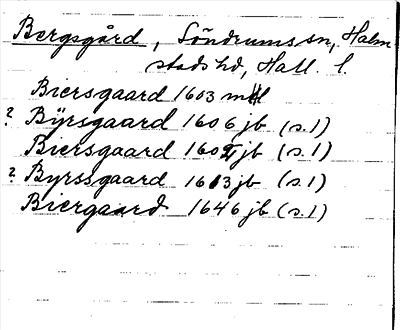 Bergsgård, Söndrums sn, Halm-
stads hd, Hall. l.
Biersgaard 1603 mtl
? Bÿrsgaard 1606 jb (s.1)
Biersgaard jb (s.1)
? Byrssgaard 1613 jb (s.1)
Biergaard 1646 jb (s.1)